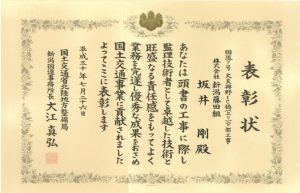 表彰状
国道7号 大夫興野とう橋下部工事
株式会社 新潟藤田組
坂井 剛 殿
あなたは頭書の工事に際し
監理技術者として卓越した技術と
旺盛なる責任感をもってよく
業務を完遂し優秀な成果をおさめ
国土交通事業に貢献されました
よってここに表彰します
平成三十年七月二十六日
国土交通省北陸地方整備局
新潟国道事務所長 大江真弘